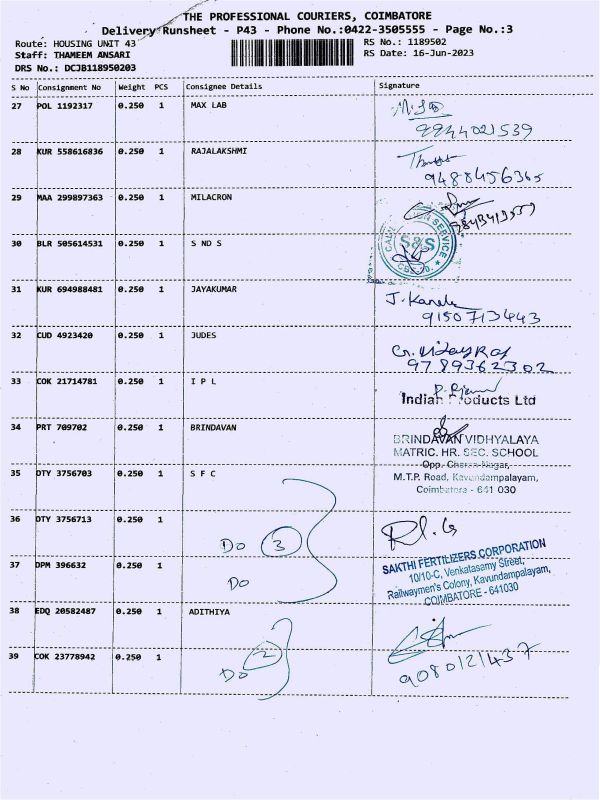 THE PROFESSIONAL COURIERS, COIMBATORE
Delivery Runsheet - P43 - Phone No.:0422-3505555 - Page No.:3
Route: HOUSING UNIT 43
RS No.: 1189502
Staff: THAMEEM ANSARI
RS Date: 16-Jun-2023
DRS No.: DCJB118950203
S No Consignment No Weight PCS Consignee Details Signature
27 POL 1192317 0.250 1 MAX LAB
9944021539
28 KUR 558616836 0.250 1 RAJALAKSHMI
9488456365
29 MAA 299897363 0.250 1 MILACRON
30 BLR 505614531 0.250 1 S ND S
S&S
31 KUR 694988481 0.250 1 JAYAKUMAR
9150713443
32 CUD 4923420 0.250 1 JUDES
9789362302
33 COK 21714781 0.250 1 I P L
Indian Products Ltd
34 PRT 709702 0.250 1 BRINDAVAN
BRINDAVAN VIDHYALAYA
MATRIC. HR. SEC. SCHOOL
Opp. Cheran Nagar,
35 DTY 3756703 0.250 1 S F C
M.T.P. Road, Kavundampalayam,
Coimbatore - 641 030
36 DTY 3756713 0.250 1
Do 3
37 DPM 396632 0.250 1
Do
SAKTHI FERTILIZERS CORPORATION
10/10-C, Venkatasamy Street,
Railwaymen's Colony, Kavundampalayam,
COIMBATORE - 641030
38 EDQ 20582487 0.250 1 ADITHIYA
39 COK 23778942 0.250 1
Do 2
9080121437